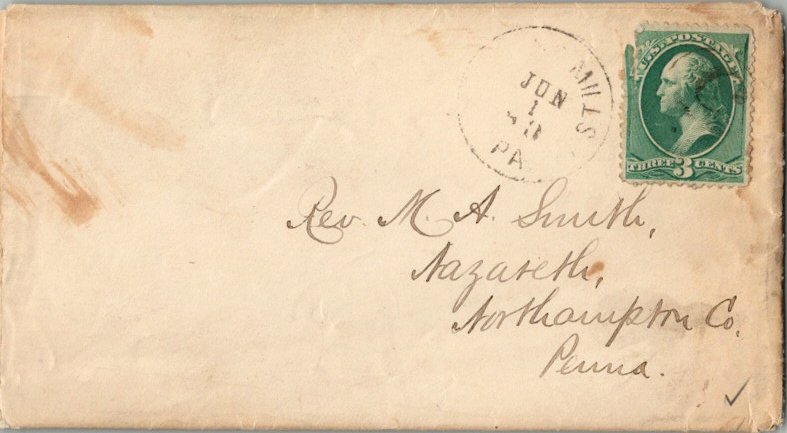 MILLS
JUN
1
PA
U.S. POSTAGE
THREE 3 CENTS
Rev. M. A. Smith,
Nazareth,
Northampton Co.
Penna.